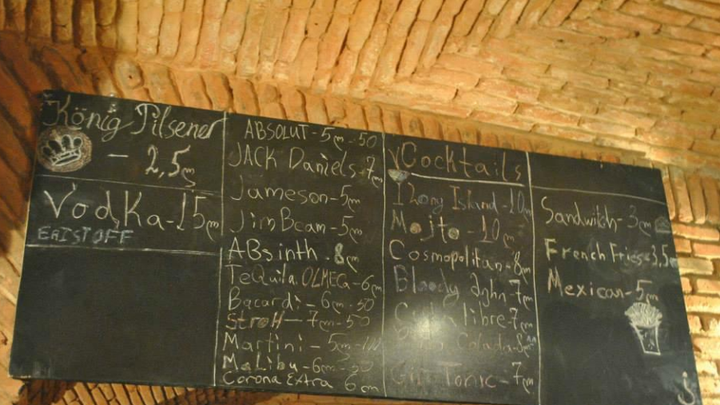 König Pilsener
- 2,5m
VodKa-15m
ERISTOFF
ABSOLUT-5m-50
JACK Daniels-7m
Jameson-5m
JimBeam-5m
ABsinth-8m
TeQuila OLMECA-6m
Bacardi-6m-50
StroH-7m-50
Martini-5m
MaLibu-6m
Corona Extra 6m
Cocktails
Long Island-10m
Mojto-10m
Cosmopolitan-8m
Bloody 7m
libre-7m
Colada-8m
Gin Tonic-7m
Sandwitch-3m
French Fries-3,5m
Mexican-5m